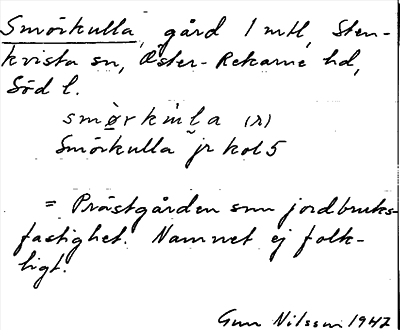 Smörkulla, gård 1 mtl, Sten-
kvista sn, Öster-Rekarne hd,
Söd l.
smø̀rkul̀a (r)
Smörkulla jr kol 5
= Prästgården som jordbruks-
fastighet. Namnet ej folk-
ligt.
Gun Nilsson 1947